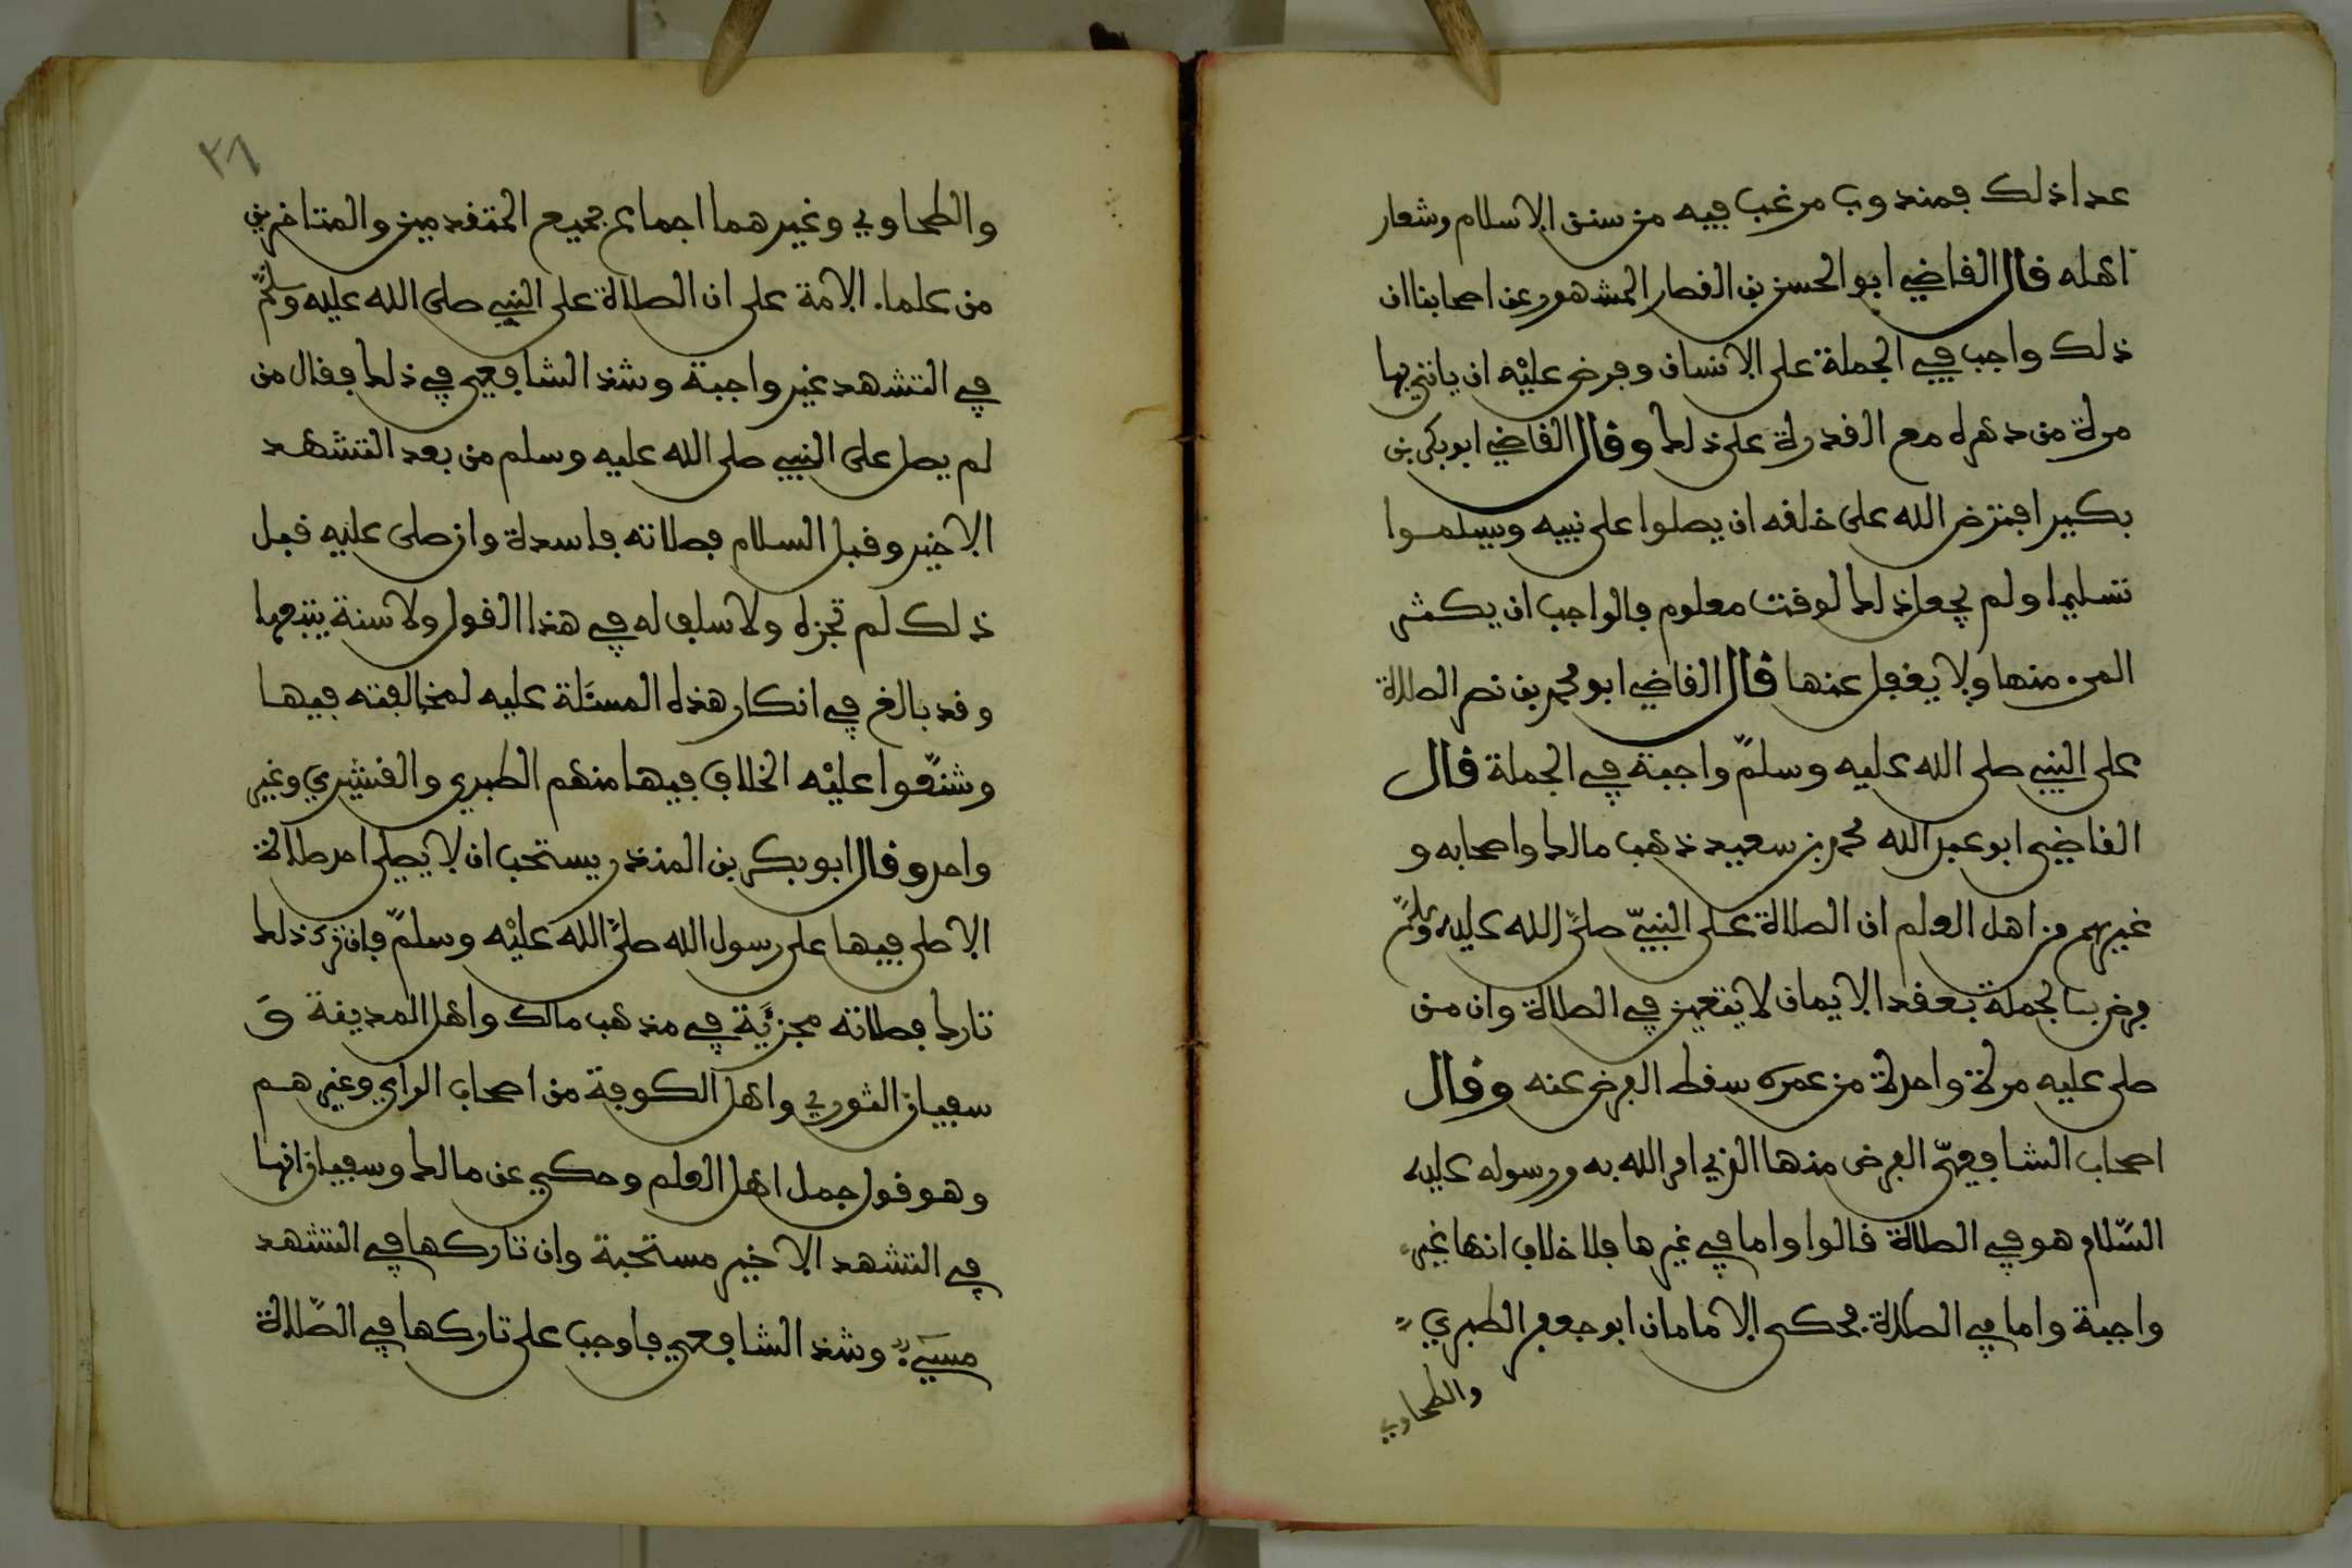 عدا ذلك فمندوب مرغب فيه من سنن الاسلام وشعار
اهله قال القاضي ابو الحسن بن القصار المشهور عن اصحابنا ان
ذلك واجب في الجملة على الانسان وفرض عليه ان ياتي بها
مرة من دهره مع القدرة على ذلك وقال القاضي ابو بكر بن
بكير افترض الله على خلقه ان يصلوا على نبيه ويسلموا
تسليما ولم يجعل ذلك لوقت معلوم فالواجب ان يكثر
المرء منها ولا يغفل عنها قال القاضي ابو محمد بن نصر الصلاة
على النبي صلى الله عليه وسلم واجبة في الجملة قال
القاضي ابو عبد الله محمد بن سعيد ذهب مالك واصحابه و
غيرهم من اهل العلم ان الصلاة على النبي صلى الله عليه وسلم
فرض بالجملة بعقد الايمان لا يتعين في الصلاة وان من
صلى عليه مرة واحدة من عمره سقط الفرض عنه وقال
اصحاب الشافعي الفرض منها الذي امر الله به ورسوله عليه
السلام هو في الصلاة قالوا واما في غيرها فلا خلاف انها غير
واجبة واما في الصلاة فحكى الامامان ابو جعفر الطبري
والطحاوي
٢٦
والطحاوي وغيرهما اجماع جميع المتقدمين والمتاخرين
من علماء الامة على ان الصلاة على النبي صلى الله عليه وسلم
في التشهد غير واجبة وشذ الشافعي في ذلك فقال من
لم يصل على النبي صلى الله عليه وسلم من بعد التشهد
الاخير وقبل السلام فصلاته فاسدة وان صلى عليه قبل
ذلك لم تجزه ولا سلف له في هذا القول ولا سنة يتبعها
وقد بالغ في انكار هذه المسئلة عليه لمخالفته فيها
وشنعوا عليه الخلاف فيها منهم الطبري والقشيري وغير
واحد وقال ابو بكر بن المنذر يستحب ان لا يصلي احد صلاة
الا صلى فيها على رسول الله صلى الله عليه وسلم فان ترك ذلك
تارك فصلاته مجزئة في مذهب مالك واهل المدينة و
سفيان الثوري واهل الكوفة من اصحاب الراي وغيرهم
وهو قول جمل اهل العلم وحكي عن مالك وسفيان انها
في التشهد الاخير مستحبة وان تاركها في التشهد
مسيء وشذ الشافعي فاوجب على تاركها في الصلاة